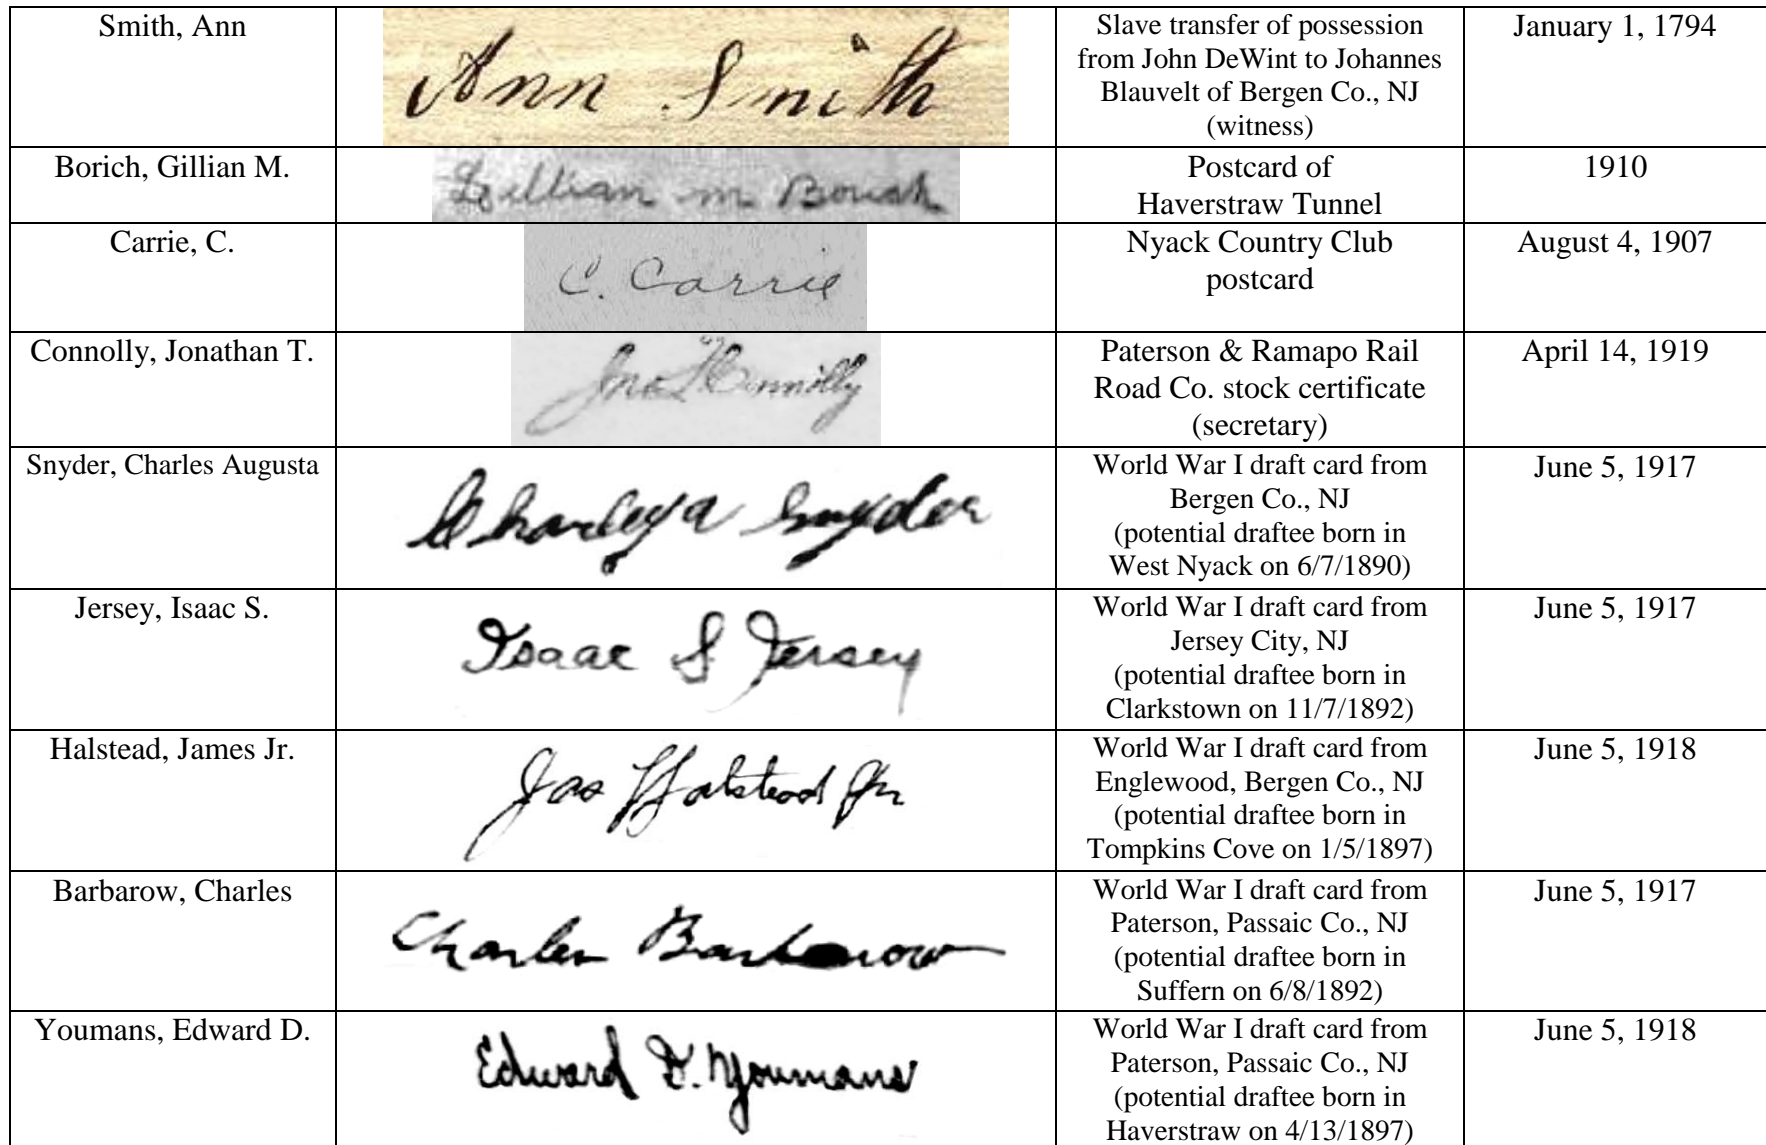 Smith, Ann
Ann Smith
Slave transfer of possession
from John DeWint to Johannes
Blauvelt of Bergen Co., NJ
(witness)
January 1, 1794
Borich, Gillian M.
Gillian M Borich
Postcard of
Haverstraw Tunnel
1910
Carrie, C.
C. Carrie
Nyack Country Club
postcard
August 4, 1907
Connolly, Jonathan T.
Jno T Connolly
Paterson & Ramapo Rail
Road Co. stock certificate
(secretary)
April 14, 1919
Snyder, Charles Augusta
Charley A Snyder
World War I draft card from
Bergen Co., NJ
(potential draftee born in
West Nyack on 6/7/1890)
June 5, 1917
Jersey, Isaac S.
Isaac S Jersey
World War I draft card from
Jersey City, NJ
(potential draftee born in
Clarkstown on 11/7/1892)
June 5, 1917
Halstead, James Jr.
Jas Halstead Jr
World War I draft card from
Englewood, Bergen Co., NJ
(potential draftee born in
Tompkins Cove on 1/5/1897)
June 5, 1918
Barbarow, Charles
Charles Barbarow
World War I draft card from
Paterson, Passaic Co., NJ
(potential draftee born in
Suffern on 6/8/1892)
June 5, 1917
Youmans, Edward D.
Edward D. Youmans
World War I draft card from
Paterson, Passaic Co., NJ
(potential draftee born in
Haverstraw on 4/13/1897)
June 5, 1918